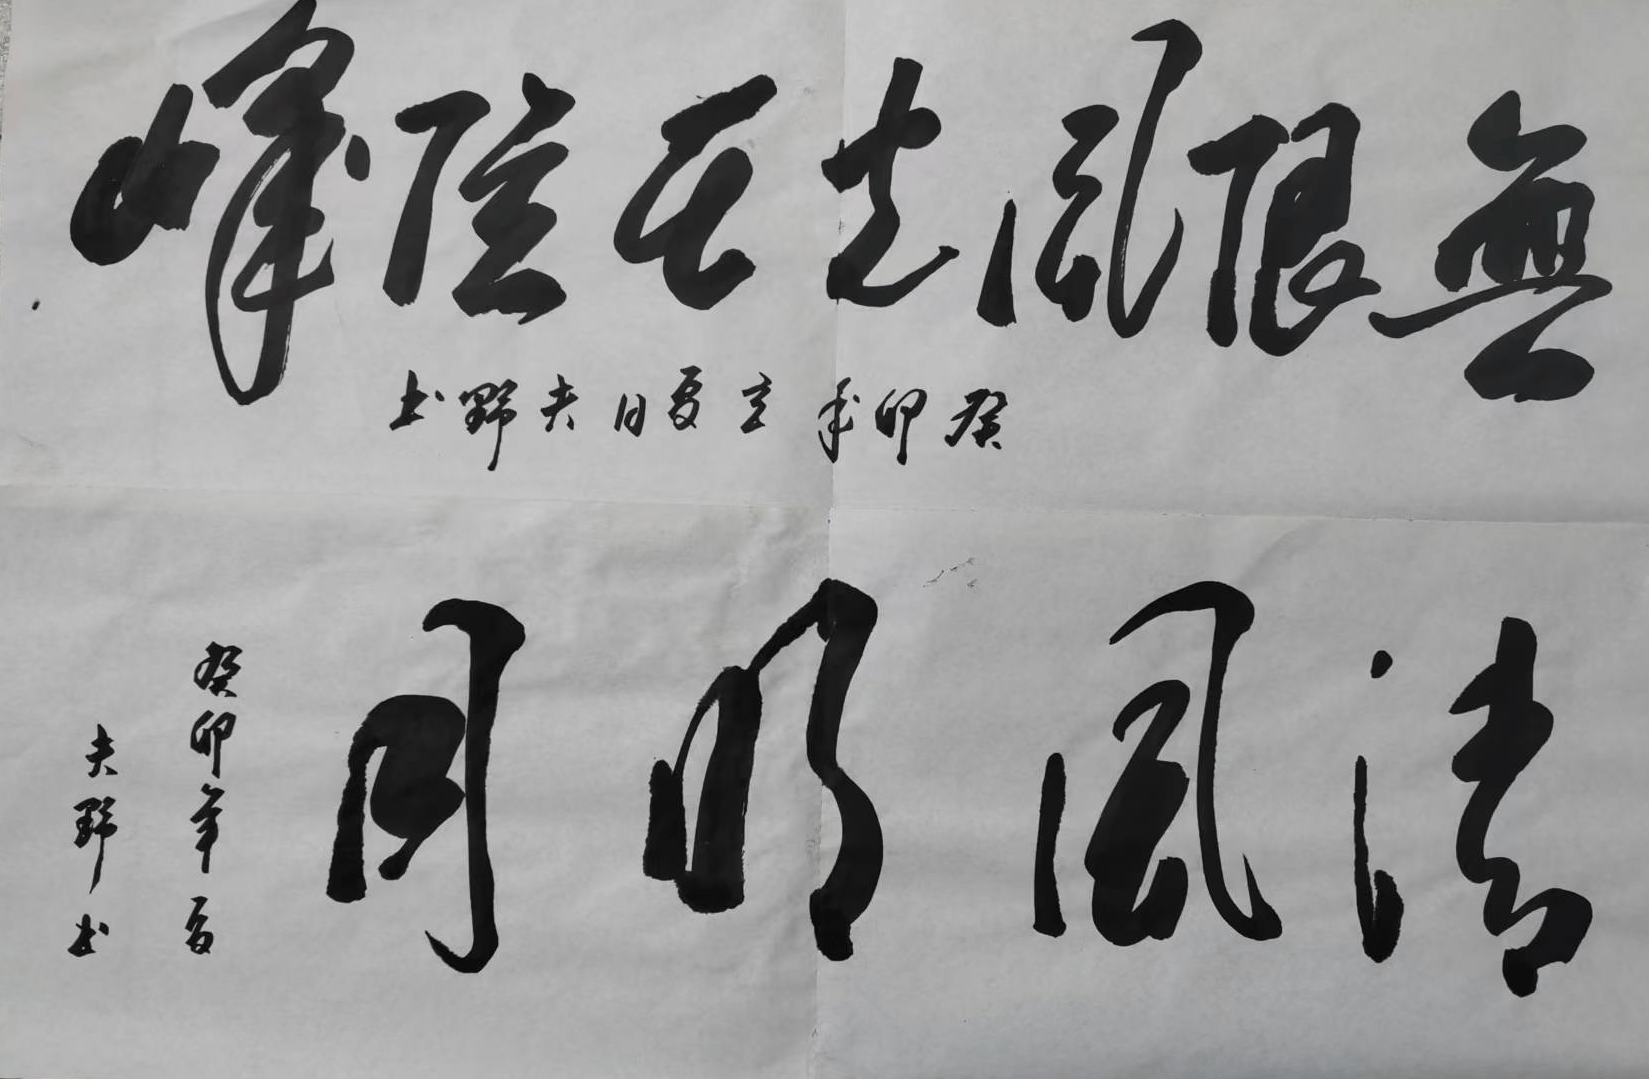 無限風光在險峰
癸卯年立夏日夫野书
清風明月
癸卯年夏
夫野书